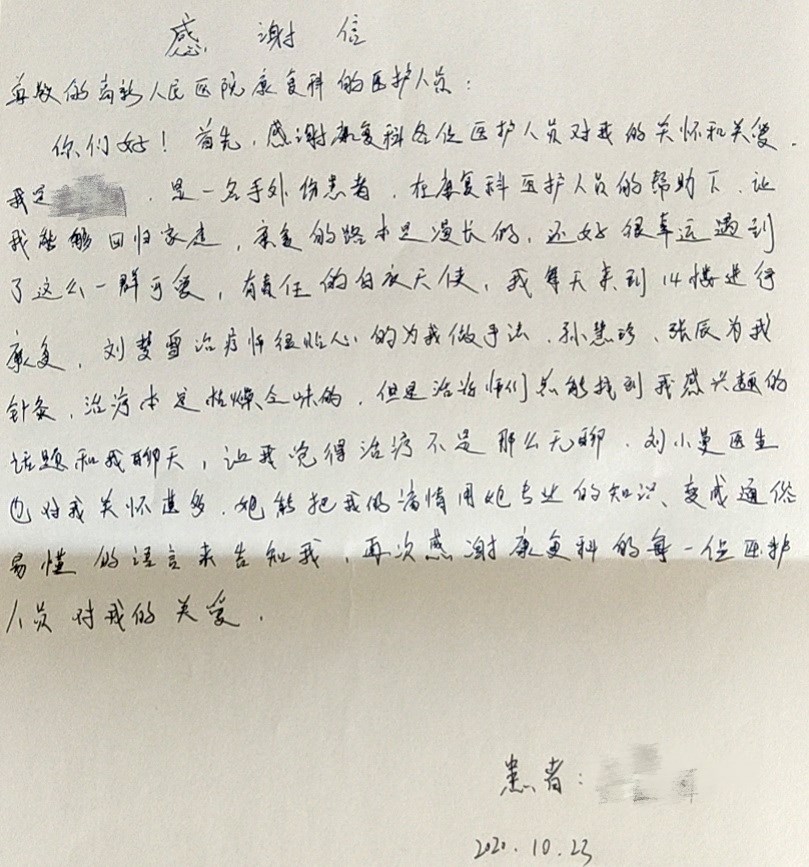 感谢信
尊敬的高新人民医院康复科的医护人员：
你们好！首先，感谢康复科各位医护人员对我的关怀和关爱.
我是 , 是一名手外伤患者, 在康复科医护人员的帮助下, 让
我能够回归家庭, 康复的路本是漫长的, 还好很幸运遇到
了这么一群可爱, 有责任的白衣天使, 我每天来到14楼进行
康复, 刘梦雪治疗师很贴心的为我做手法, 孙慧珍、张辰为我
针灸, 治疗本是枯燥乏味的, 但是治疗师们总能找到我感兴趣的
话题和我聊天, 让我觉得治疗不是那么无聊. 刘小曼医生
也对我关怀甚多, 她能把我的病情用她专业的知识、变成通俗
易懂的语言来告知我, 再次感谢康复科的每一位医护
人员对我的关爱.
患者：
2020.10.23